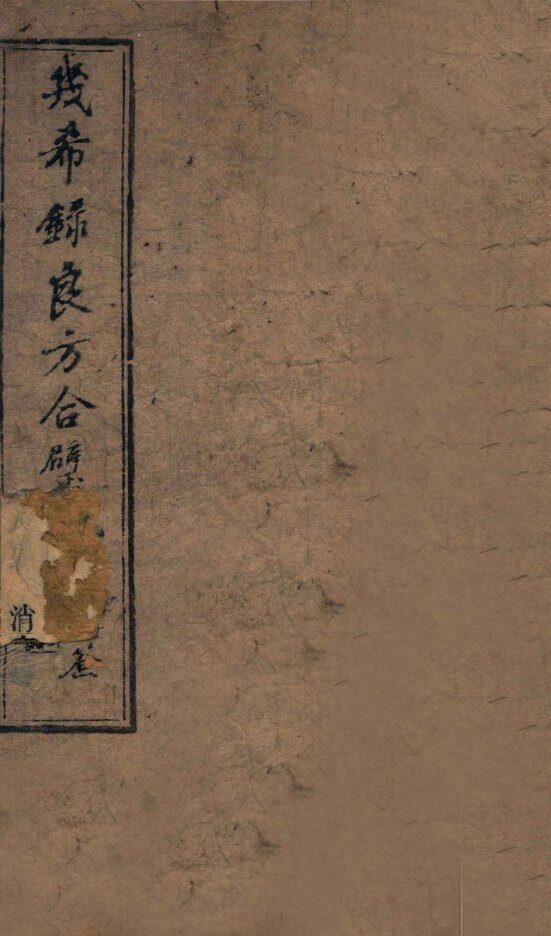 幾希錄良方合璧
消